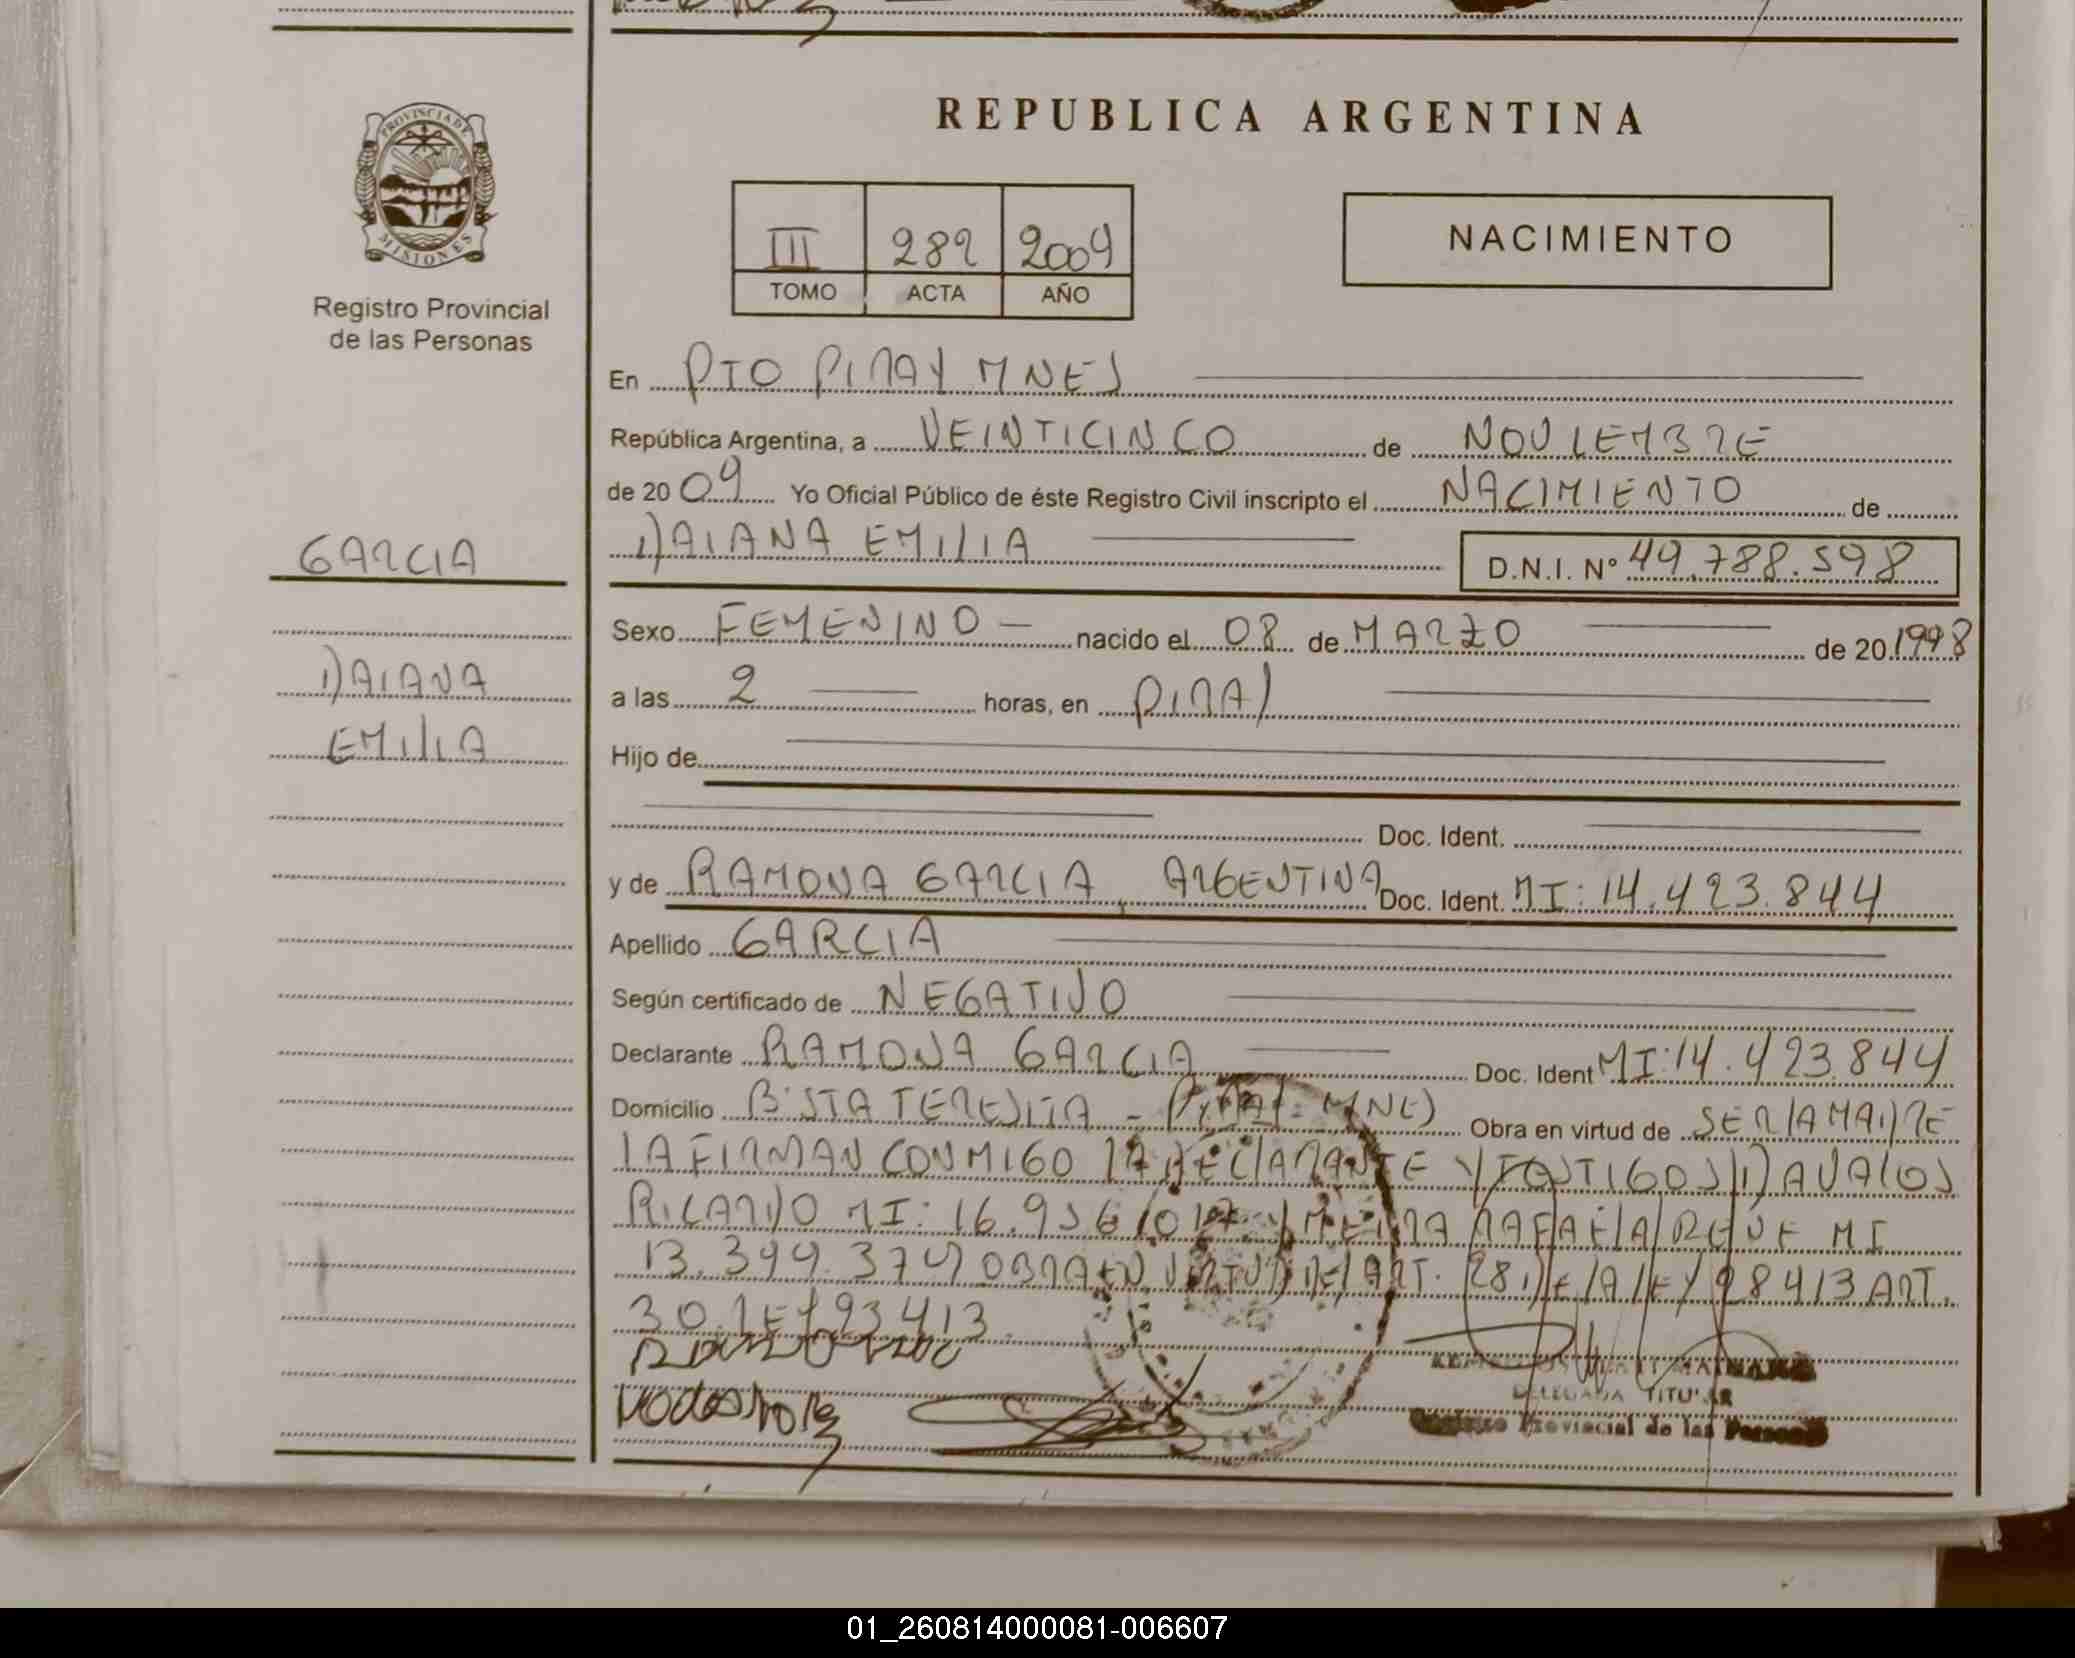 REPUBLICA ARGENTINA
PROVINCIA DE
MISIONES
Registro Provincial
de las Personas
III 282 2009
TOMO ACTA AÑO
NACIMIENTO
En PTO PIRAY MNES
República Argentina, a VEINTICINCO de NOVIEMBRE
de 20 09 Yo Oficial Público de éste Registro Civil inscripto el NACIMIENTO de
DAIANA EMILIA
D.N.I. N° 49.788.598
GARCIA
DAIANA
EMILIA
Sexo FEMENINO nacido el 08 de MARZO de 20 1998
a las 2 horas, en PIRAY
Hijo de
Doc. Ident.
y de RAMONA GARCIA, ARGENTINA Doc. Ident. MI: 14.423.844
Apellido GARCIA
Según certificado de NEGATIVO
Declarante RAMONA GARCIA Doc. Ident MI: 14.423.844
Domicilio B° STA TERESITA - PIRAY - MNES Obra en virtud de SER LA MADRE
LA FIRMAN CONMIGO LA DECLARANTE Y TESTIGOS DAVALOS
RICARDO MI: 16.956.017 Y RAFAELA MI
13.399.374 OBRA EN VIRTUD DEL ART. 28 DE LA LEY 28413 ART.
30 LEY 23413.
DELEGADA TITULAR
Registro Provincial de las Personas
01_260814000081-006607